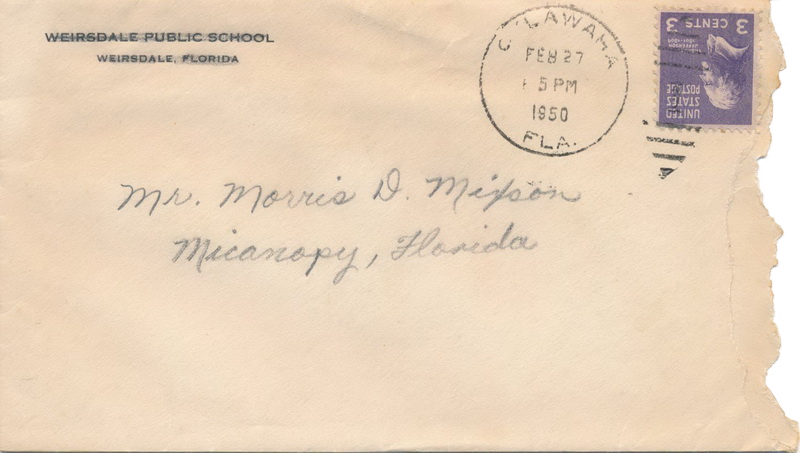 WEIRSDALE PUBLIC SCHOOL
WEIRSDALE, FLORIDA
FEB 27
5 PM
1950
FLA.
3 CENTS 3
UNITED
STATES
POSTAGE
Mr. Morris D. Mixson
Micanopy, Florida